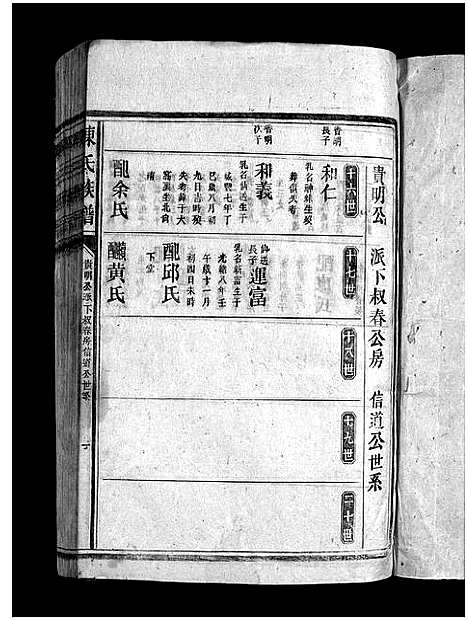 貴明公派下叔春公房 信道公世系
十六世
貴明長子
和仁
乳名神妹生歿
葬俱失考
貴明次子
和義
乳名信送生于
咸豐七年丁
巳歲八月初
九日吉時歿
失考葬于大
窩頭坐北向
南
配余氏
十七世
信送長子
運富
乳名新富生于
光緒八年壬
午歲十一月
初四日未時
配邱氏
下堂
黃氏
十八世
十九世
二十世
陳氏族譜
貴明公派下叔春房信道公世系